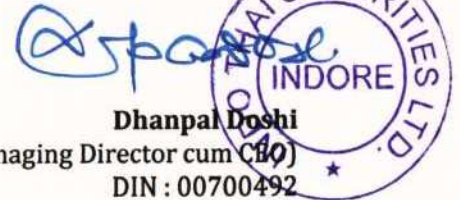 THAI
RITIES LTD.
INDORE
Dhanpal Doshi
naging Director cum CEO)
DIN : 00700492